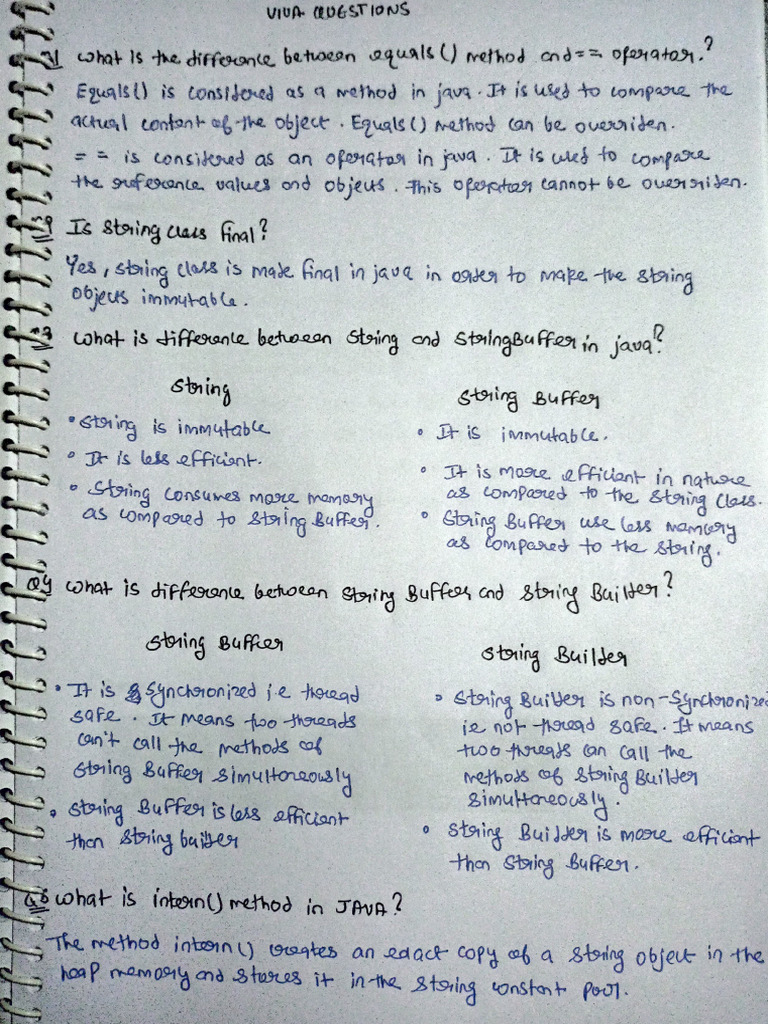 VIVA QUESTIONS
Q1 What is the difference between equals() method and == operator?
Equals() is considered as a method in java. It is used to compare the
actual content of the object. Equals() method can be overriden.
== is considered as an operator in java. It is used to compare
the reference values and objects. This operator cannot be overriden.
Is String class final?
Yes, string class is made final in java in order to make the string
objects immutable.
What is difference between String and StringBuffer in java?
String
String Buffer
• String is immutable
• It is less efficient.
• String consumes more memory
as compared to String Buffer.
• It is immutable.
• It is more efficient in nature
as compared to the String Class.
• String Buffer use less memory
as compared to the string.
Q4 What is difference between String Buffer and String Builder?
String Buffer
String Builder
• It is Synchronized i.e thread
safe. It means two threads
can't call the methods of
String Buffer simultoneously
• String Buffer is less efficient
than String builder
• String Builder is non-Synchronized
ie not thread safe. It means
two threads can call the
methods of String Builder
simultoneously.
• String Builder is more efficient
than String Buffer.
What is intern() method in JAVA?
The method intern() creates an edact copy of a string object in the
heap memory and stores it in the string constant pool.